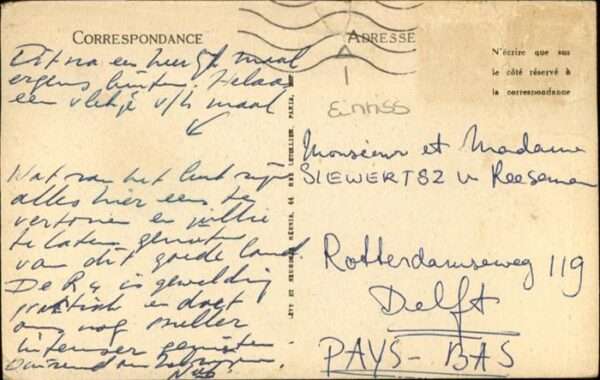 CORRESPONDANCE
ADRESSE
N'écrire que sur
le côté réservé à
la correspondance
Dit na een heerlijk maal
ergens buiten. Helaas
een vlekje v/h maal
Wat zou het leuk zijn
alles hier eens te
vertonen en jullie
te laten genieten
van dit goede land.
De R4 is geweldig
praktisch en doet
ons nog sneller
intenser genieten
LÉVY ET NEURDEIN RÉUNIS, 44 RUE LETELLIER, PARIS, IMP
Monsieur et Madame
SIEWERTSZ v. Reesema
Rotterdamseweg 119
Delft
PAYS-BAS